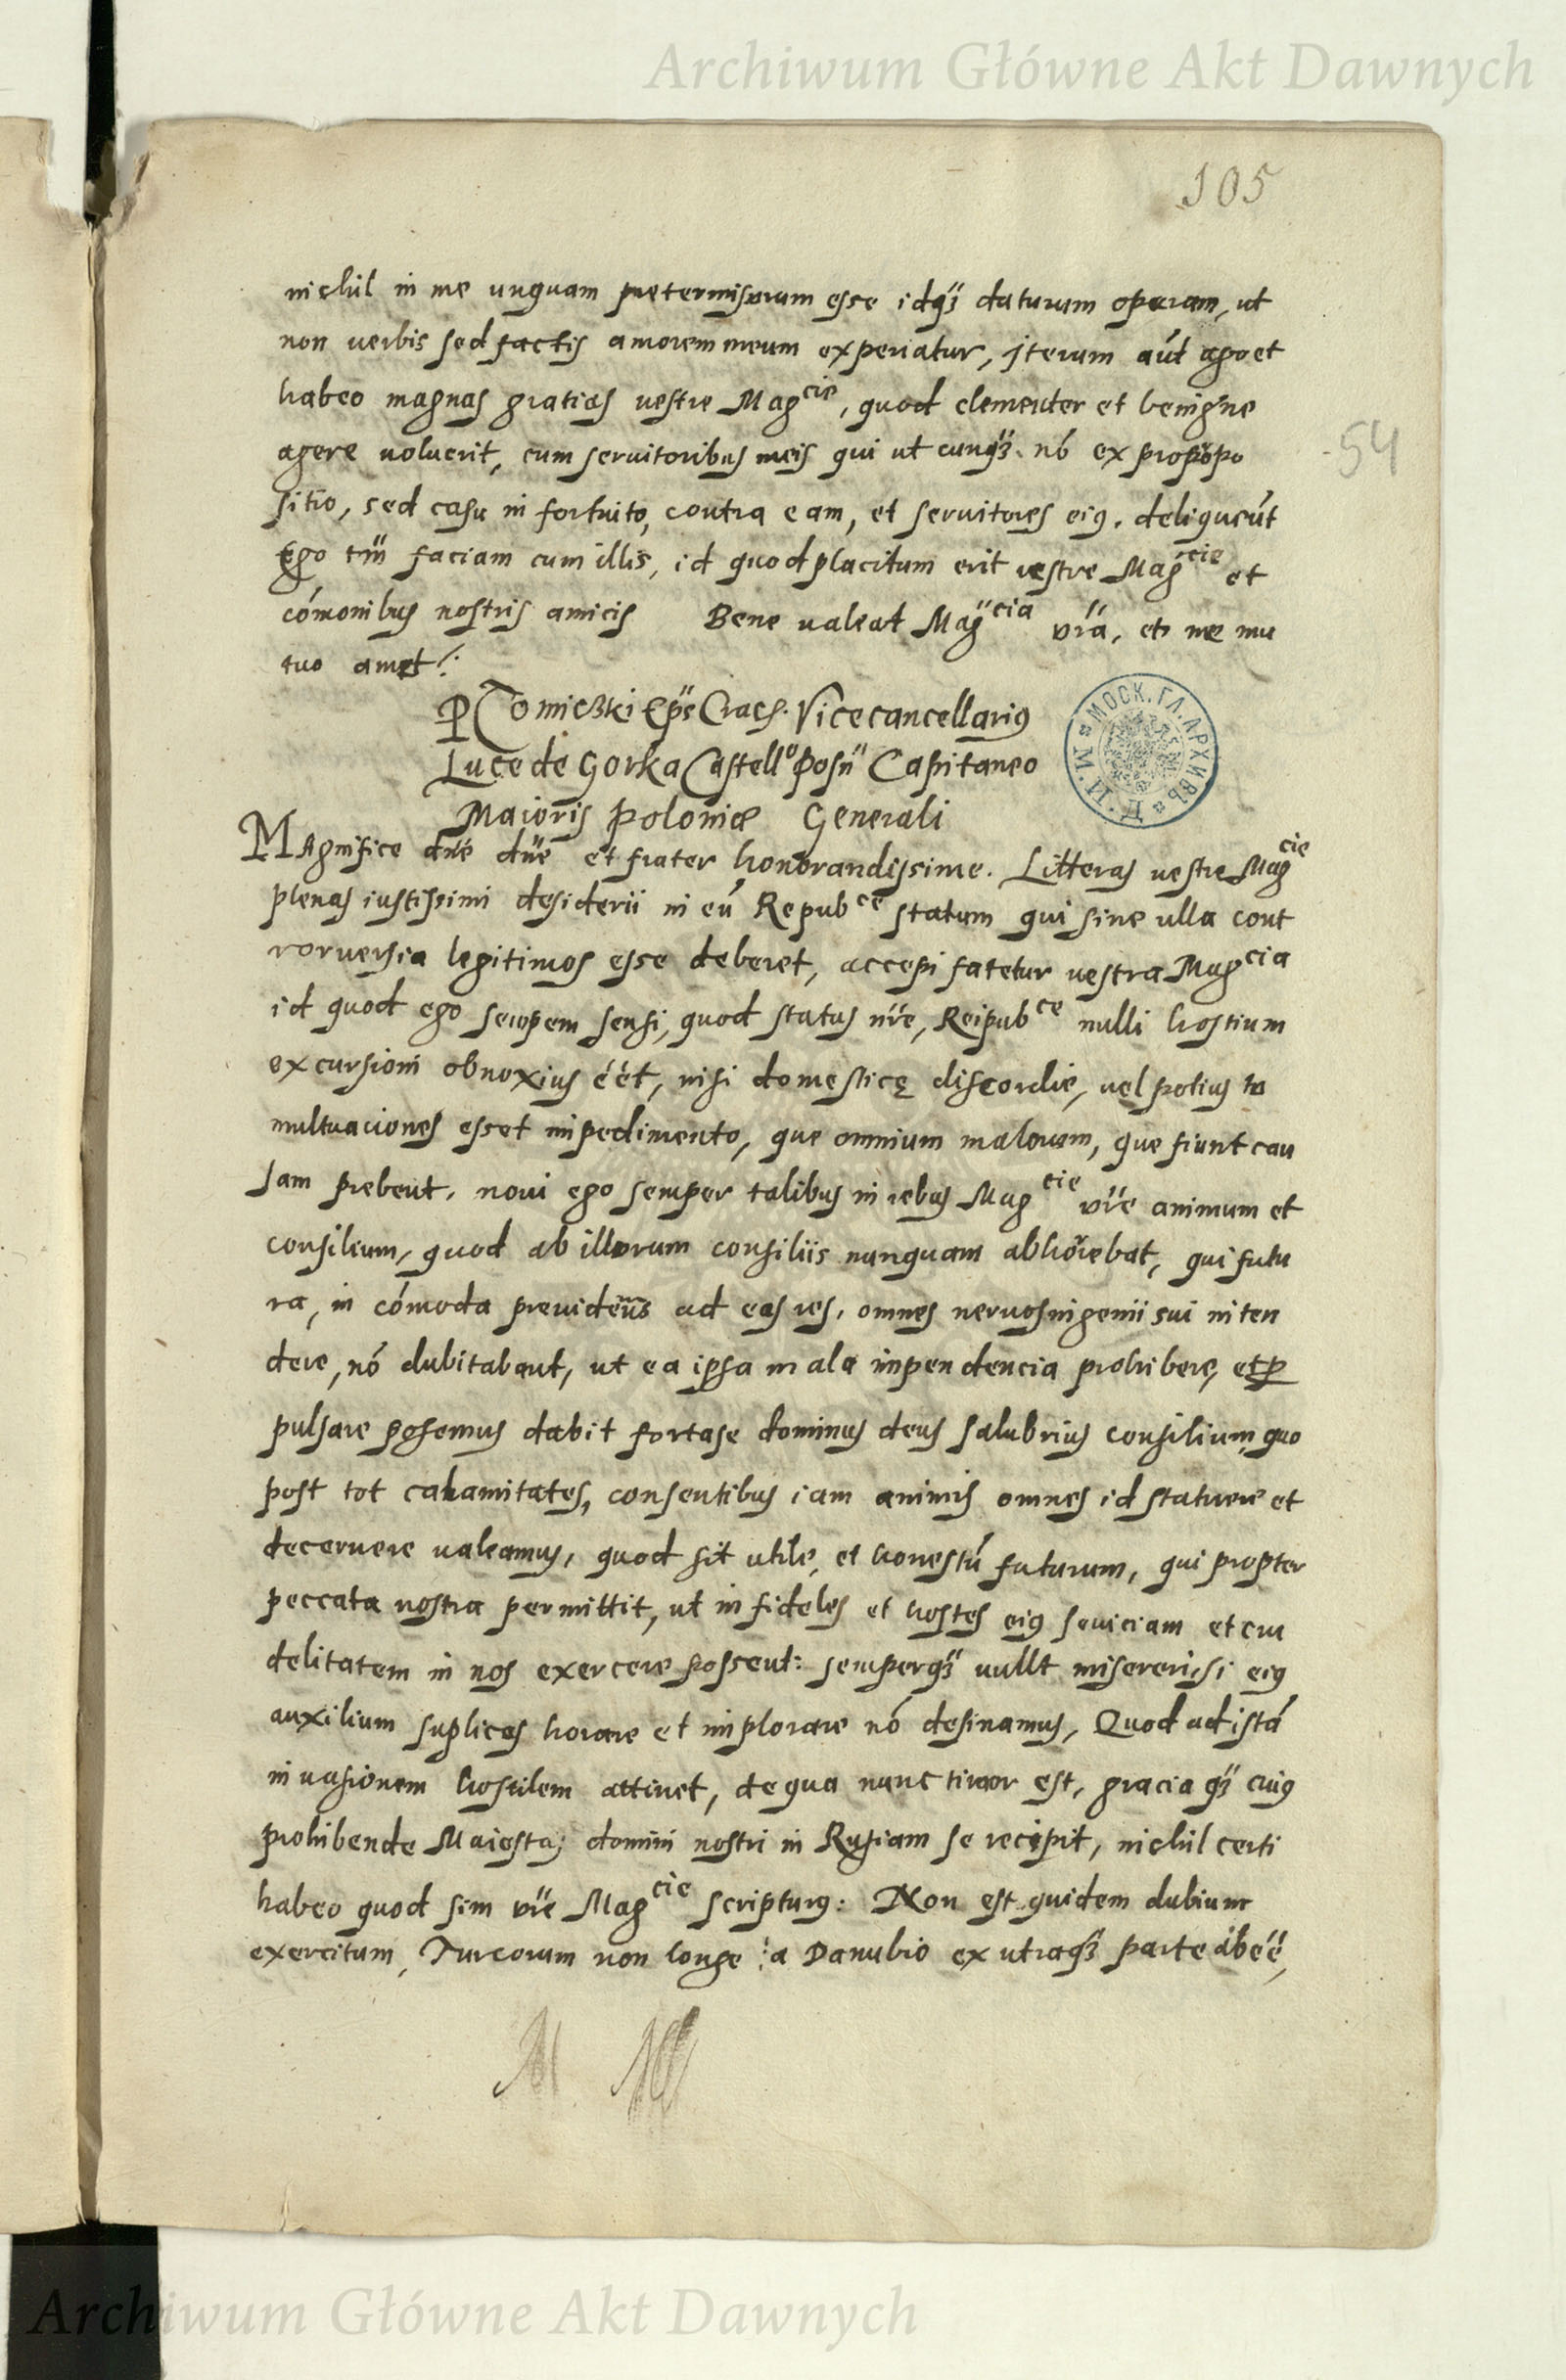 Archiwum Główne Akt Dawnych
105
nichil in me unquam pretermissurum esse idq3 daturum operam, ut
non uerbis sed factis amorem meum experiatur, Jterum aut ago et
habeo magnas gratias uestre Mag^cie, quod clementer et benigne
agere uoluerit, cum seruitoribus meis qui ut cunq3 nō ex propopo
54
sitio, sed casu in fortuito, contra eam, et seruitores eiꝰ, deliquerūt
Ego tn̄ faciam cum illis, id quod placitum erit uestre Mag^cie et
cōmonibus nostris amicis Bene ualeat Mag^cia vr̄a, et me mu
tuo amet/.
P Tomiczki Ep̄s Crac. Vicecancellariꝰ
Luce de Gorka Castell^o Posn̄ Capitaneo
Maioris Poloniæ Generali
MAgnifice dn̄e dn̄e et frater honorandissime. Litteras uestre Mag^cie
plenas iustissimi desiderii in eū Repub^ce statum qui sine ulla cont
rouersia legitimos esse deberet, accepi fatetur uestra Mag^cia
id quod ego sempem sensi, quod status nr̄e, Reipub^ce nulli hostium
excursioni obnoxius ēēt, nisi domesticę discordie, uel potius tu
multuaciones esset impedimento, que omnium malorum, que fiunt cau
sam prebent. noui ego semper talibus in rebus Mag^cie vr̄e animum et
consilium, quod ab illorum consiliis nunquam abhorebat, qui futu
ra, in cōmoda preuidens ad eas res, omnes neruos ingenii sui inten
dere, nō dubitabant, ut ea ipsa mala inpendencia prohibere, et ꝓ
pulsare possemus dabit fortase dominus deus salubrius consilium, quo
post tot calamitates, consentibus iam animis omnes id statuere et
decernere ualeamus, quod sit utile, et honestū futurum, qui propter
peccata nostra permittit, ut infideles et hostes eiꝰ seuiciam et cru
delitatem in nos exercere possent: semperq3 uullt misereri, si eiꝰ
auxilium suplices horare et implorare nō desinamus, Quod ad istā
inuasionem hostilem attinet, de qua nunc timor est, gracia q3 cuiꝰ
prohibende Maiestas domini nostri in Rusiam se recipit, nichil certi
habeo quod sim vr̄e Mag^cie scripturꝰ: Non est quidem dubium
exercitum, Turcorum non longe a Danubio ex utraq3 parte abēē,
МОСК. ГЛ. АРХИВЪ М. И. Д.
Archiwum Główne Akt Dawnych